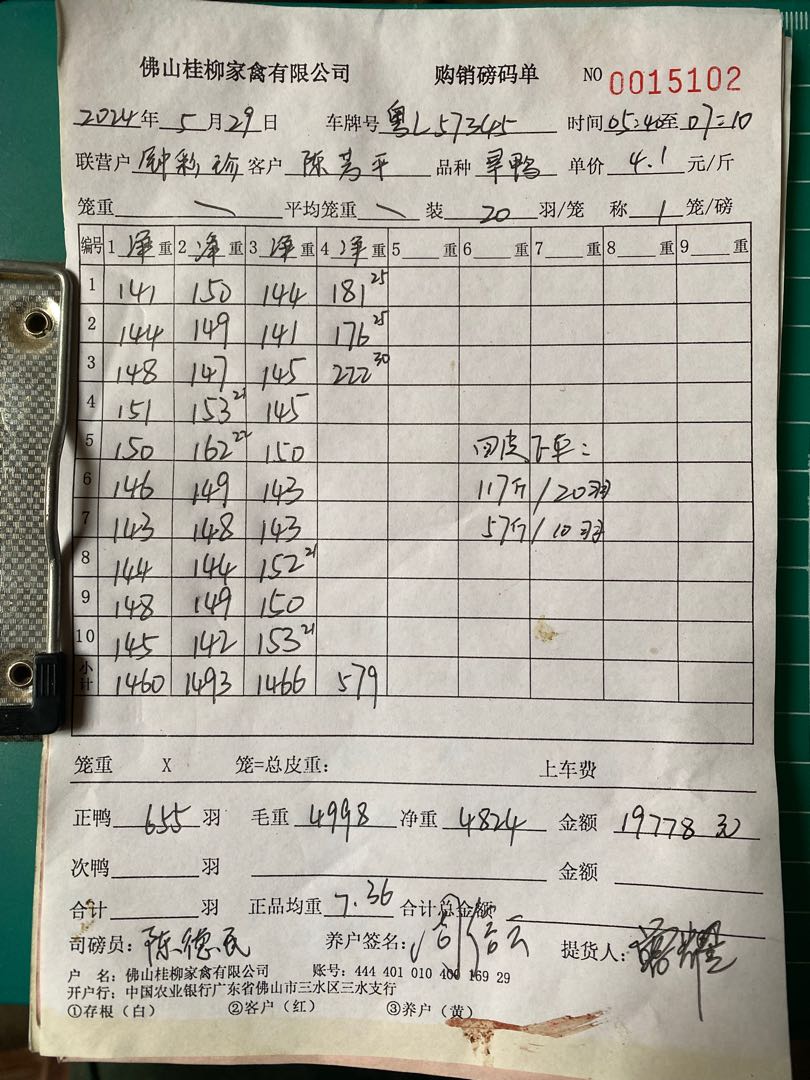 佛山桂柳家禽有限公司 购销磅码单 NO 0015102
2024年 5月29日 车牌号 粤L57345 时间05:40至07:10
联营户 钟彩珍 客户 陈嵩平 品种 旱鸭 单价 4.1 元/斤
笼重 \ 平均笼重 \ 装 20 羽/笼 称 1 笼/磅
编号 1 净重 2 净重 3 净重 4 净重 5 重 6 重 7 重 8 重 9 重
1 141 150 144 181 25
2 144 149 141 176 25
3 148 147 145 222 30
4 151 153 21 145
5 150 162 22 150 回皮下车:
6 146 149 143 117斤/20羽
7 143 148 143 57斤/10羽
8 144 144 152 21
9 148 149 150
10 145 142 153 21
小计 1460 1493 1466 579
笼重 X 笼=总皮重: 上车费
正鸭 655 羽 毛重 4998 净重 4824 金额 19778 元
次鸭 羽 金额
合计 羽 正品均重 7.36 合计总金额
司磅员: 陈德民 养户签名: 提货人:
户 名: 佛山桂柳家禽有限公司 账号: 444 401 010 400 169 29
开户行: 中国农业银行广东省佛山市三水区三水支行
①存根(白) ②客户(红) ③养户(黄)